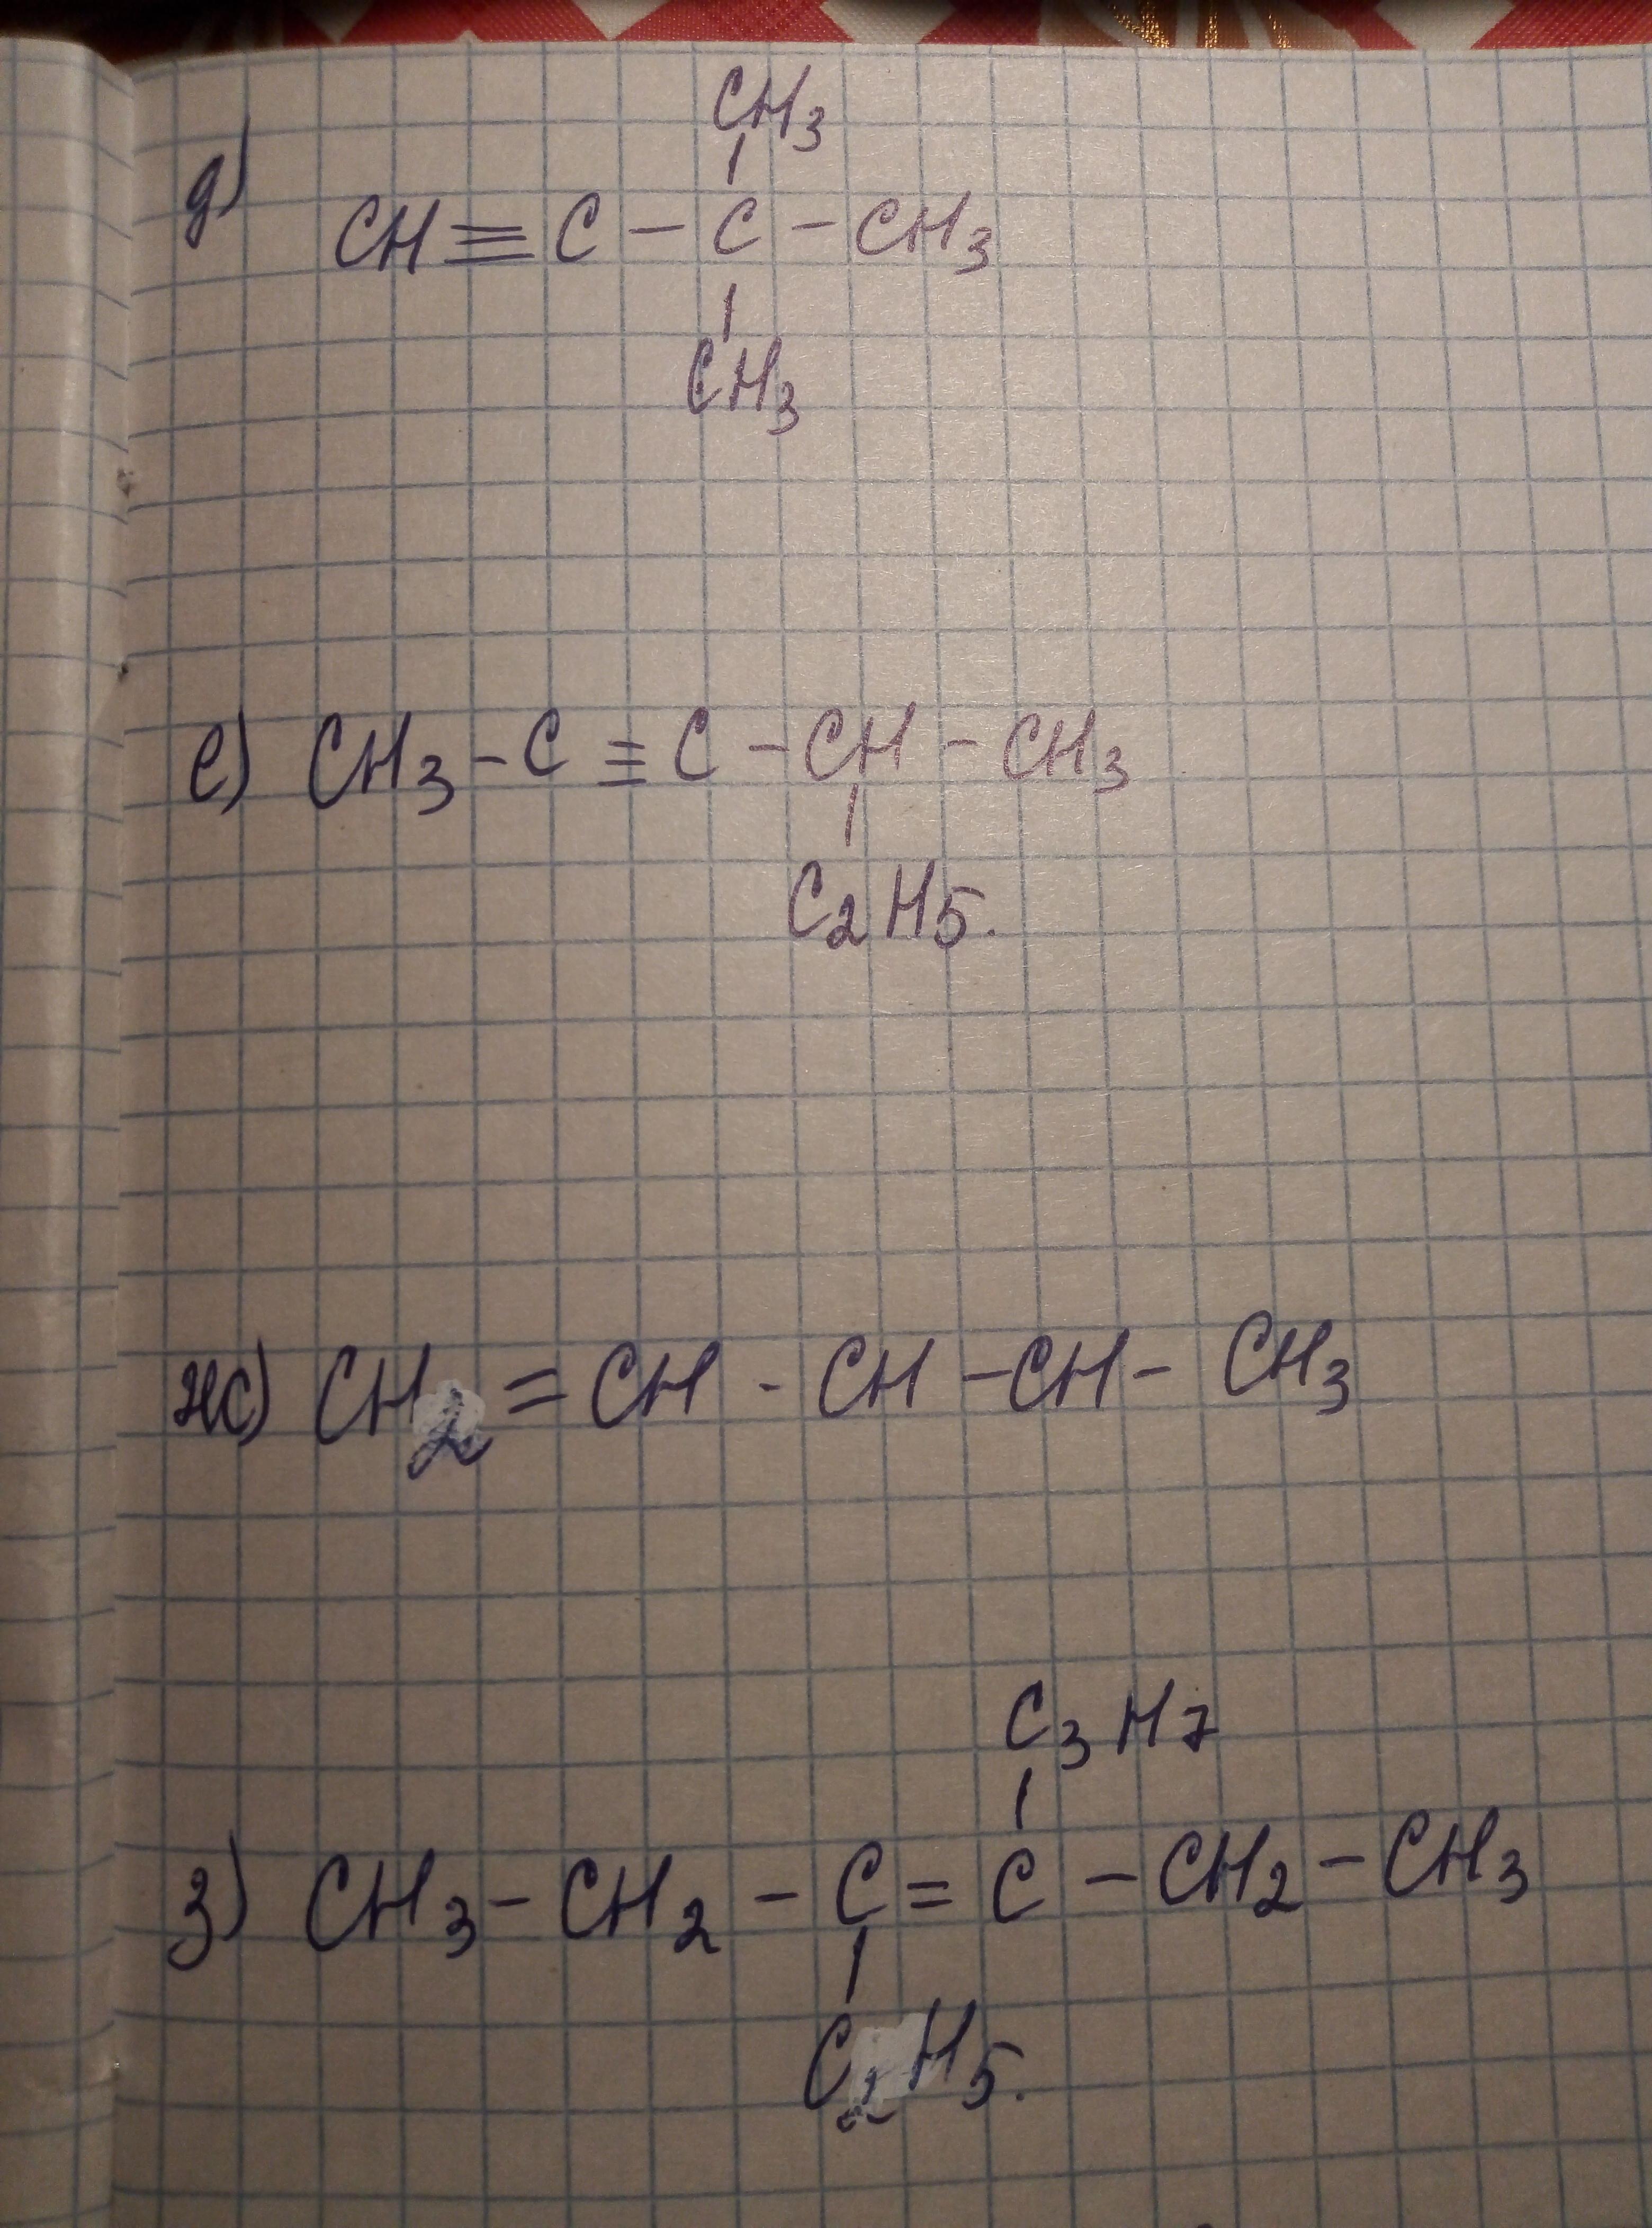 CH3
д) CH≡C-C-CH3
CH3
е) CH3-C≡C-CH-CH3
C2H5.
ж) CH2=CH-CH-CH-CH3
C3H7
з) CH3-CH2-C=C-CH2-CH3
C2H5.